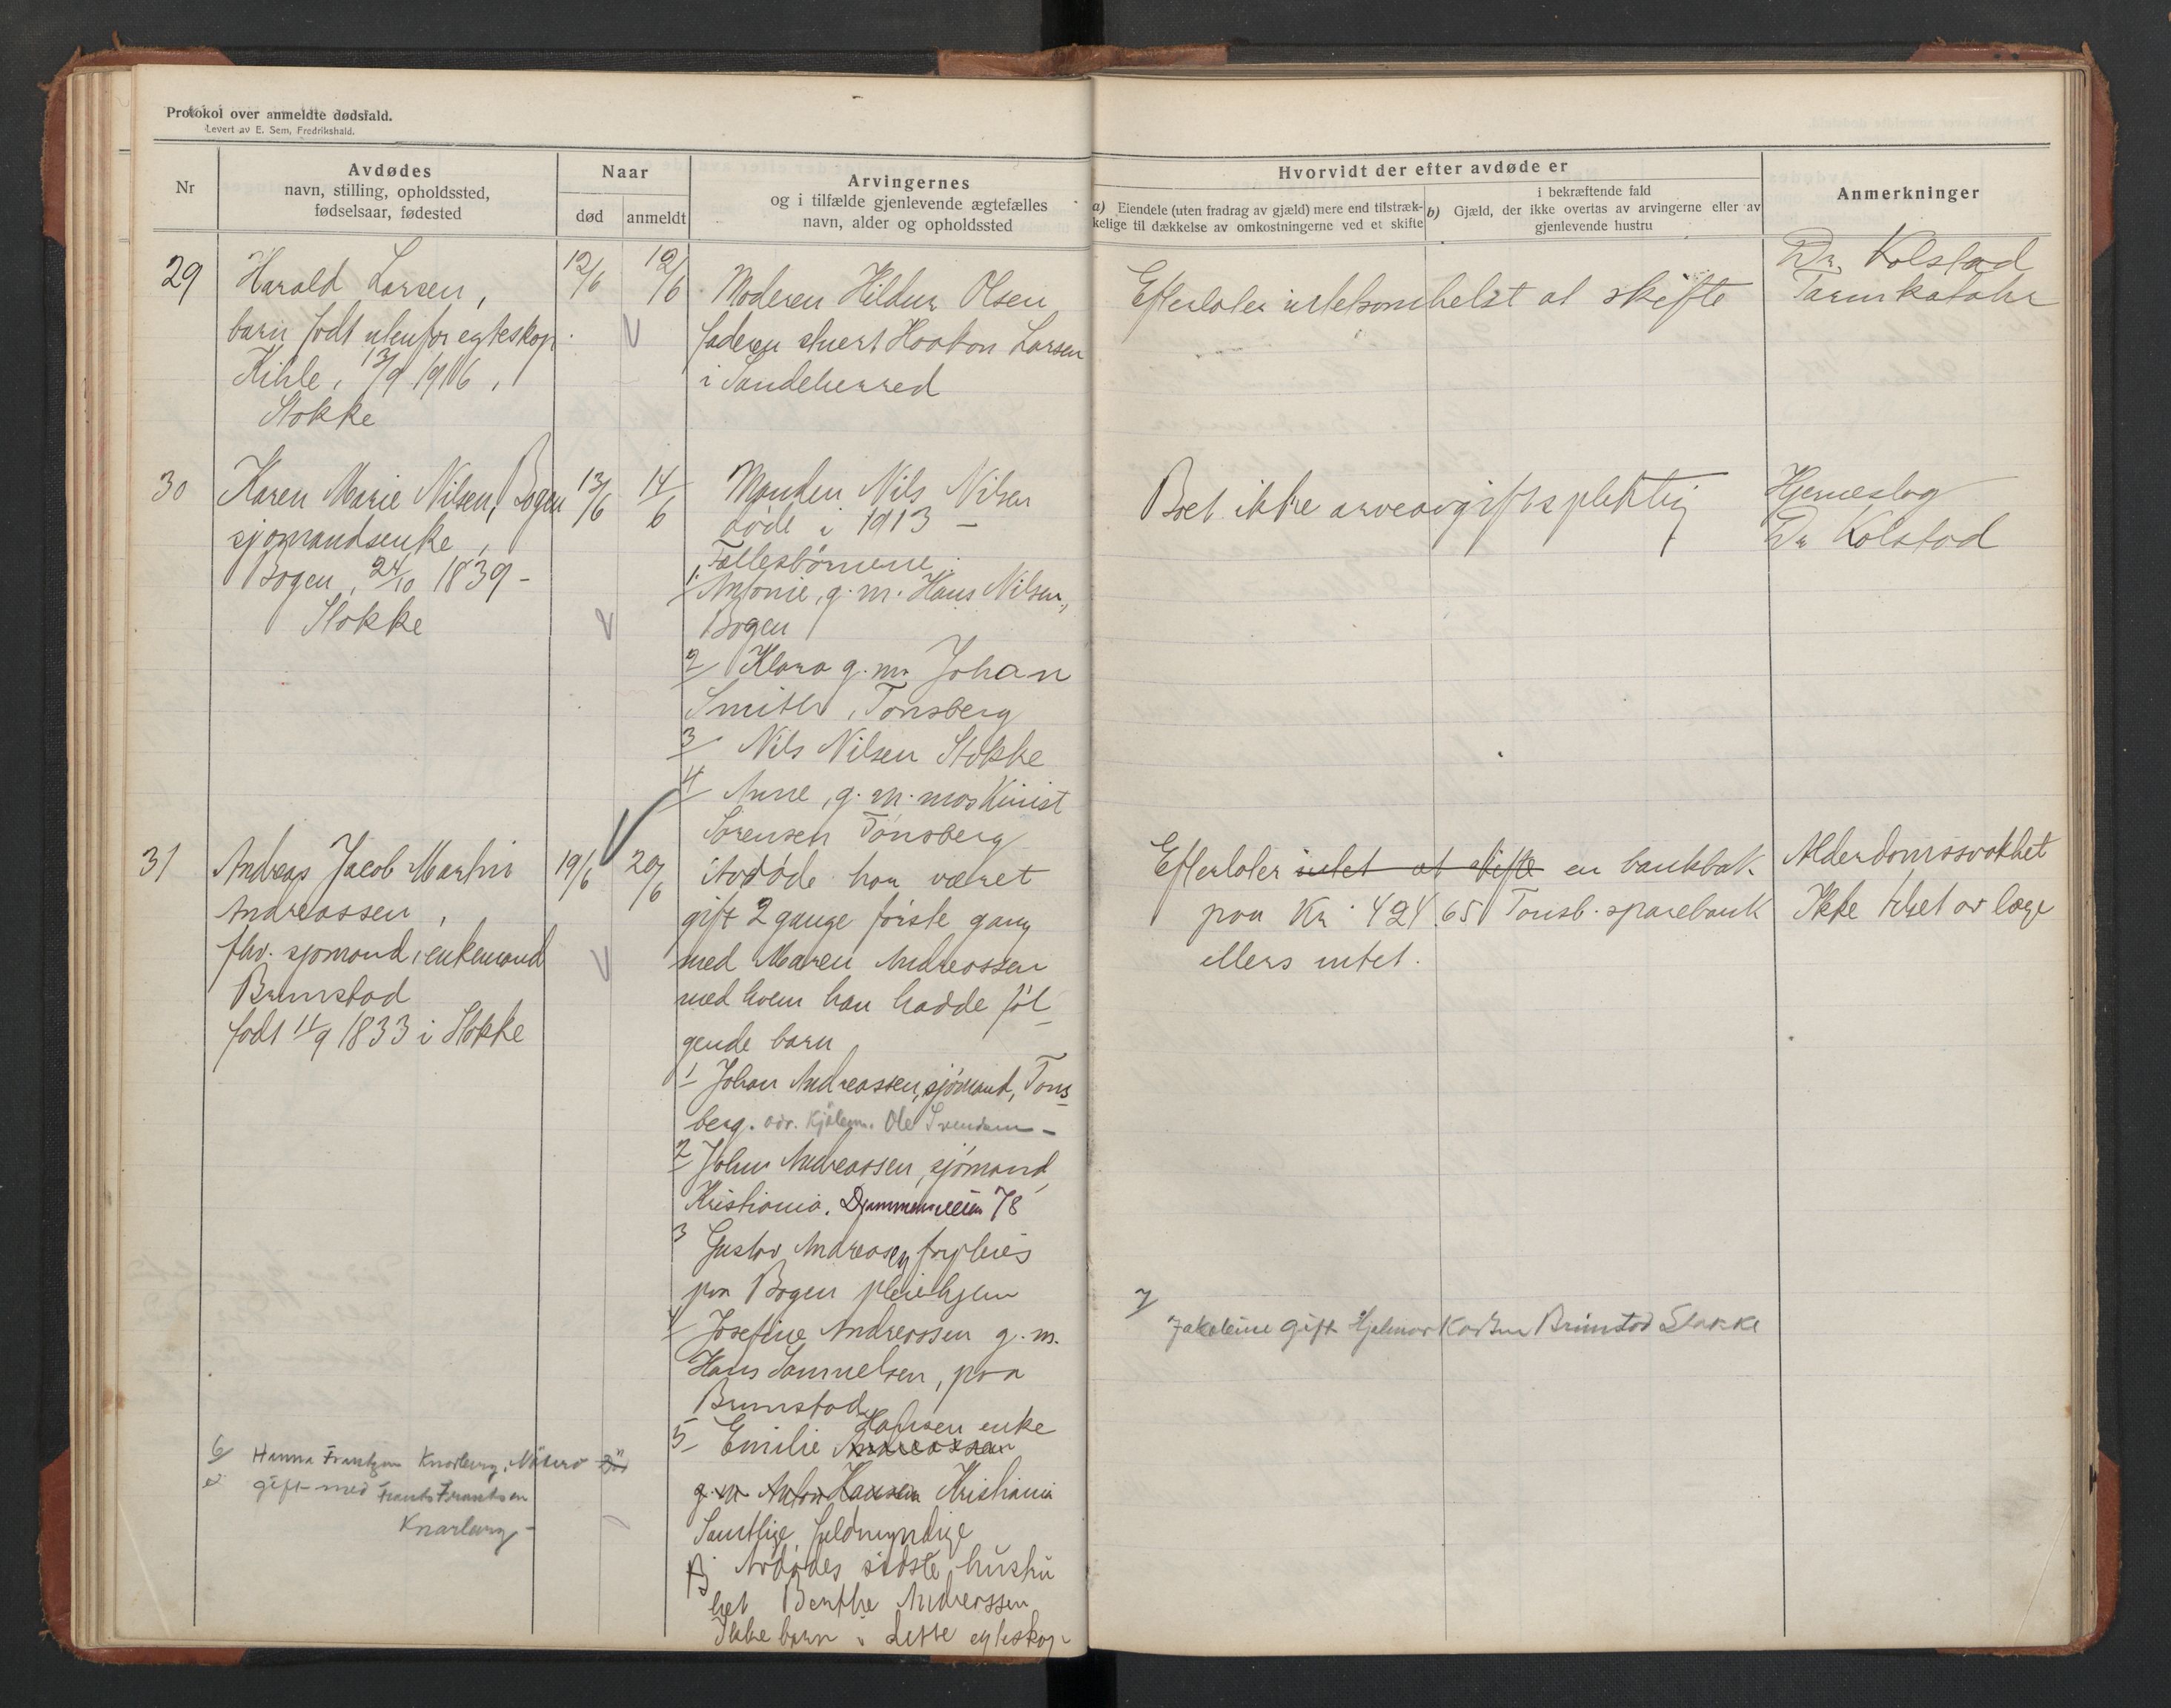 Protokol over anmeldte dødsfald.
Levert av E. Sem, Fredrikshald.
Nr
Avdødes
navn, stilling, opholdssted,
fødselsaar, fødested
Naar
død
anmeldt
Arvingernes
og i tilfælde gjenlevende ægtefælles
navn, alder og opholdssted
Hvorvidt der efter avdøde er
a) Eiendele (uten fradrag av gjæld) mere end tilstræk-
kelige til dækkelse av omkostningerne ved et skifte
i bekræftende fald
b) Gjæld, der ikke overtas av arvingerne eller av
gjenlevende hustru
Anmerkninger
29
Harald Larsen,
barn født utenfor egteskap.
Kihle, 13/9 1916,
Stokke
12/6
12/6
Moderen Hildur Olsen
faderen stuert Haakon Larsen
i Sandeherred
Efterlater intetsomhelst at skifte
Dr. Kolstad
Tarmkatahr
30
Karen Marie Nilsen, Bogen
sjømandsenke,
Bogen, 24/10 1839 -
Stokke
13/6
14/6
Manden Nils Nilsen
døde i 1913 -
Fællesbørnene:
1. Antonie, g. m. Hans Nilsen,
Bogen
2/ Klara g. m. Johan
Smith, Tønsberg
3/ Nils Nilsen Stokke
4/ Anne, g. m. maskinist
Sørensen Tønsberg
Boet ikke arveavgiftspliktig
Hjerneslag
Dr Kolstad
31
Andreas Jacob Martin
Andreassen,
fhv. sjømand, enkemand
Brunstad
født 11/9 1833 i Stokke
19/6
20/6
Avdøde har været
gift 2 gange første gang
med Maren Andreassen
med hvem han hadde føl-
gende barn
1 Johan Andreassen, sjømand, Tøns-
berg. adr. Ole Svendsen -
2 Johan Andreassen, sjømand,
Kristiania. Drammensveien 78
3 Gustav Andreasen forpleies
paa Bogen pleiehjem
4/ Josefine Andreassen g. m.
Hans Samuelsen, paa
Brunstad
Hansen enke
5 Emilie Andreassen
g. m Anton Hansen Kristiania
Samtlige fuldmyndige
B Avdødes sidste hustru
het Benthe Andreassen
Ikke barn i dette egteskap
Efterlater intet at skifte en bankbok
paa Kr. 424.65 Tønsb. sparebank
ellers intet.
Alderdomssvakhet
Ikke tilset av læge
7/
Jakobine gift Hjalmar Karlsen Brunstad Stokke
6/ Hanna Frantzen Knarberg, Nøterø
gift med Frants Frantsen
Knarberg -